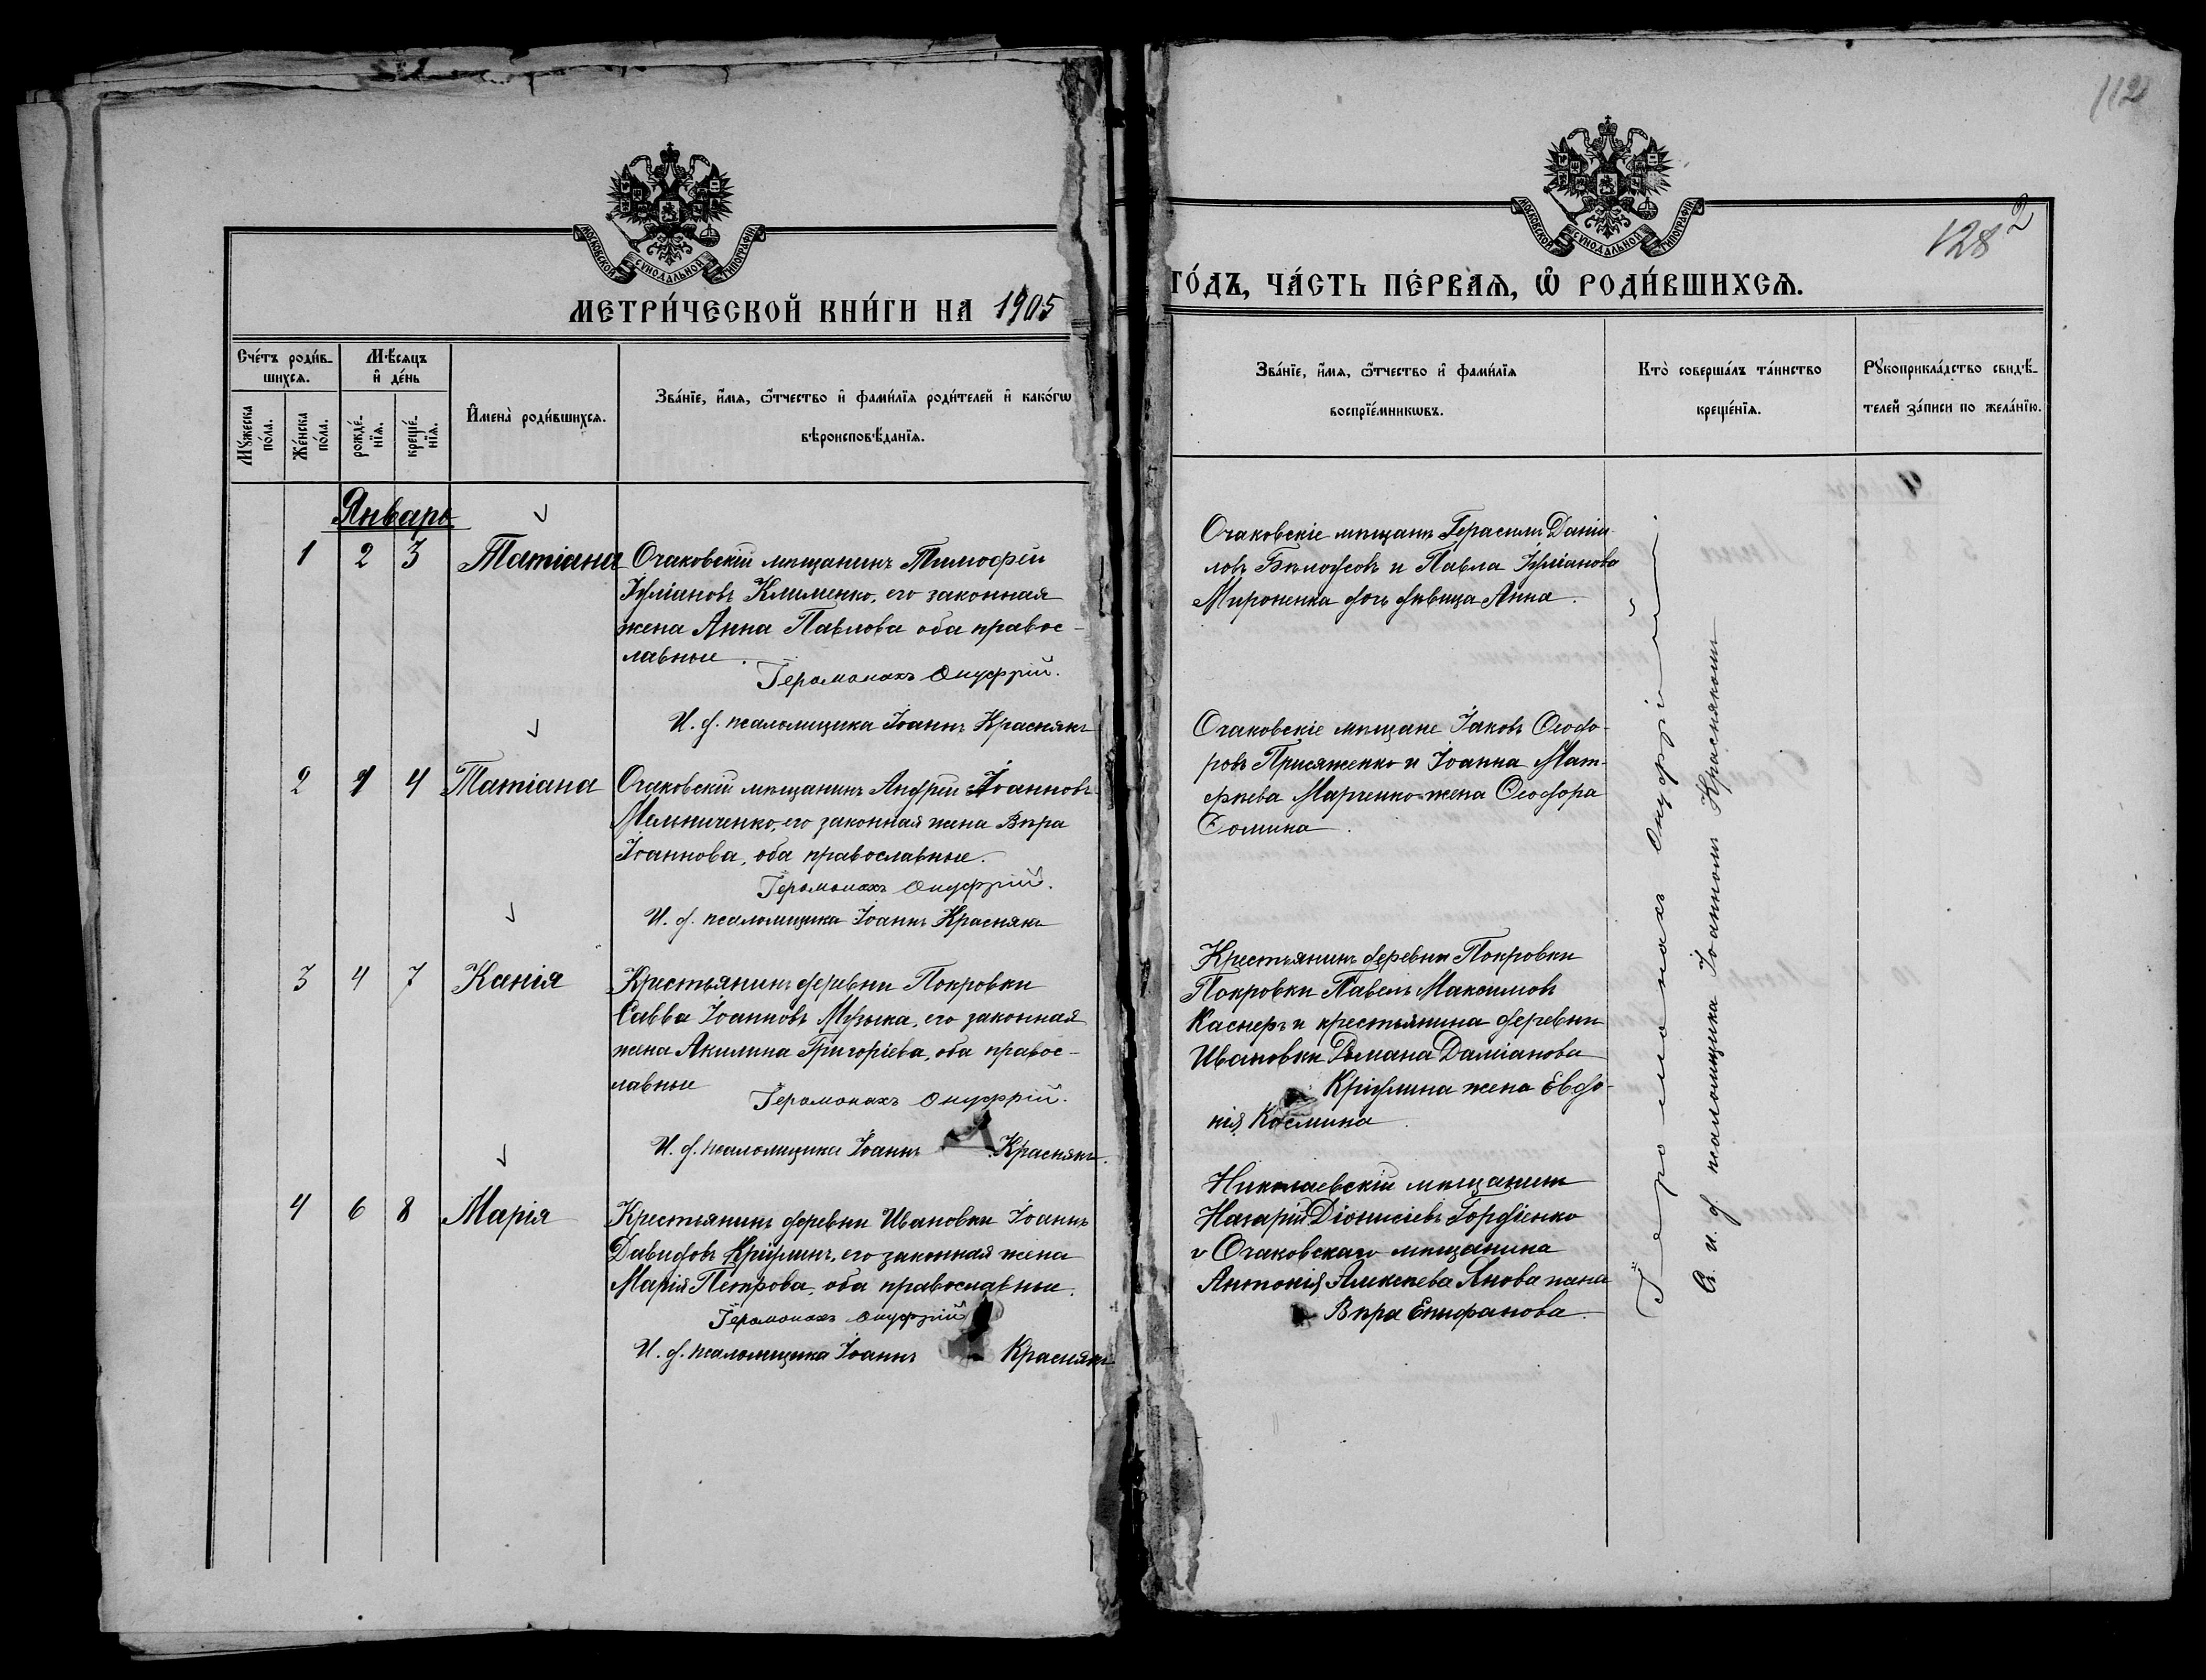 112
128
2
МОСКОВСКОЙ СѴНОДАЛЬНОЙ ТИПОГРАФІИ
МОСКОВСКОЙ СѴНОДАЛЬНОЙ ТИПОГРАФІИ
МЕТРИ́ЧЕСКОЙ КНИ́ГИ НА 1905
ГО́ДЪ, ЧА́СТЬ ПЕ́РВАѦ, Ѡ РОДИ́ВШИХСѦ.
Сче́тъ роди́в-
шихсѧ.
Мѣ́сѧцъ
и҆ де́нь
Мꙋжеска
по́ла.
Же́нска
по́ла.
рожде́-
нїѧ.
креще́-
нїѧ.
И҆мена̀ роди́вшихсѧ.
Зва́нїе, и҆́мѧ, ѻ҆́тчество и҆ фами́лїѧ роди́телей и҆ како́гѡ
вѣроисповѣ́данїѧ.
Зва́нїе, и҆́мѧ, ѻ҆́тчество и҆ фами́лїѧ
воспрїе́мникѡвъ.
Кто̀ соверша́лъ та́инство
креще́нїѧ.
Рꙋкоприкла́дство свидѣ́-
телей за́писи по жела́нїю.
Январь
1 2 3 Татіана
Очаковскій мѣщанинъ Тимофей
Іуліановъ Клименко, его законная
жена Анна Павлова оба правос-
лавные.
Іеромонахъ Онуфрій.
И. д. псаломщика Іоаннъ Краснякъ
Очаковскіе мѣщане Герасимъ Даніи-
ловъ Бѣлоусовъ и Павла Іуліанова
Мироненка дочь дѣвица Анна.
2 1 4 Татіана
Очаковскій мѣщанинъ Андрей Іоанновъ
Мельниченко, его законная жена Вѣра
Іоаннова, оба православные.
Іеромонахъ Онуфрій.
И. д. псаломщика Іоаннъ Краснякъ
Очаковскіе мѣщане Іаковъ Ѳеодо-
ровъ Присяженко и Іоанна Мат-
фѣева Марченко жена Ѳеодора
Ѳомина.
3 4 7 Ксенія
Крестьянинъ деревни Покровки
Савва Іоанновъ Музыка, его законная
жена Акилина Григоріева, оба правос-
лавные
Іеромонахъ Онуфрій.
И. д. псаломщика Іоаннъ Краснякъ.
Крестьянинъ деревни Покровки
Покровки Павелъ Максимовъ
Каснеръ и крестьянина деревни
Ивановки Романа Даміанова
жена Евдо-
кія Косьмина.
4 6 8 Марія
Крестьянинъ деревни Ивановки Іоаннъ
Давидовъ его законная жена
Марія Петрова, оба православные.
Іеромонахъ Онуфрій
И. д. псаломщика Іоаннъ Краснякъ
Николаевскій мѣщанинъ
Назарій Діонисіевъ Гордіенко
и Очаковскаго мѣщанина
Антонія Алексѣева Янова жена
Вѣра Епифанова.
Іеромонахъ Онуфрій
С. и. д. псаломщика Іоанномъ Краснякомъ